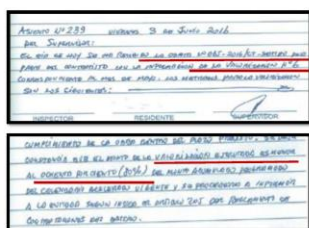 ASIENTO Nº 239 VIERNES 3 DE JUNIO 2016
DEL SUPERVISOR:
EL DIA DE HOY SE HA RECIBIDO LA CARTA Nº POR
PARTE DEL CONTRATISTA CON LA DE LA VALORIZACION Nº 6
CORRESPONDIENTE AL MES DE MAYO. LOS METRADOS PARA LA VALORIZACION
SON LOS SIGUIENTES:
INSPECTOR RESIDENTE SUPERVISOR
CUMPLIMIENTO DE LA OBRA DENTRO DEL PLAZO PREVISTO.
CONSTANCIA QUE EL MONTO DE LA VALORIZACION EJECUTADA ES MENOR
AL OCHENTA PORCIENTO (80%) DEL MONTO ACUMULADO PROGRAMADO
DEL CALENDARIO ACELERADO VIGENTE Y SE PROCEDERA A INFORMAR
A LA ENTIDAD SEGUN INDICA EL ARTICULO 205 DEL REGLAMENTO DE
CONTRATACIONES DEL ESTADO.